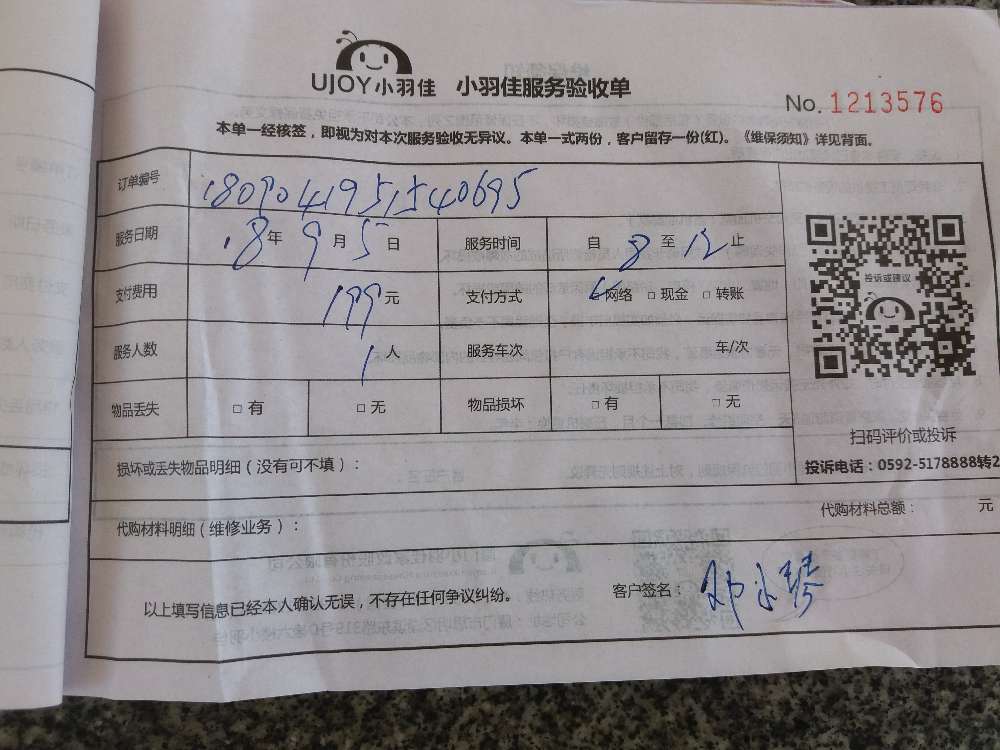 UJOY小羽佳 小羽佳服务验收单
No. 1213576
本单一经核签，即视为对本次服务验收无异议。本单一式两份，客户留存一份(红)。《维保须知》详见背面。
订单编号 1809041951540695
服务日期 18年9月5日 服务时间 自8至12止
支付费用 199元 支付方式 网络 □现金 □转账
投诉或建议
服务人数 1人 服务车次 车/次
物品丢失 □有 □无 物品损坏 □有 □无
扫码评价或投诉
损坏或丢失物品明细（没有可不填）：
投诉电话：0592-5178888转2
代购材料明细（维修业务）： 代购材料总额： 元
以上填写信息已经本人确认无误，不存在任何争议纠纷。 客户签名：